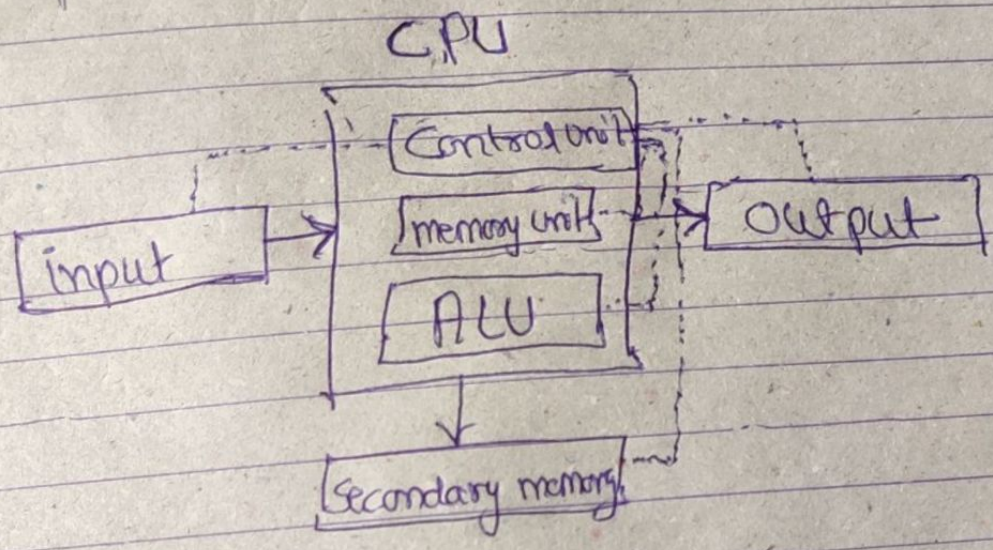 CPU
Control unit
memory unit
input
output
ALU
Secondary memory